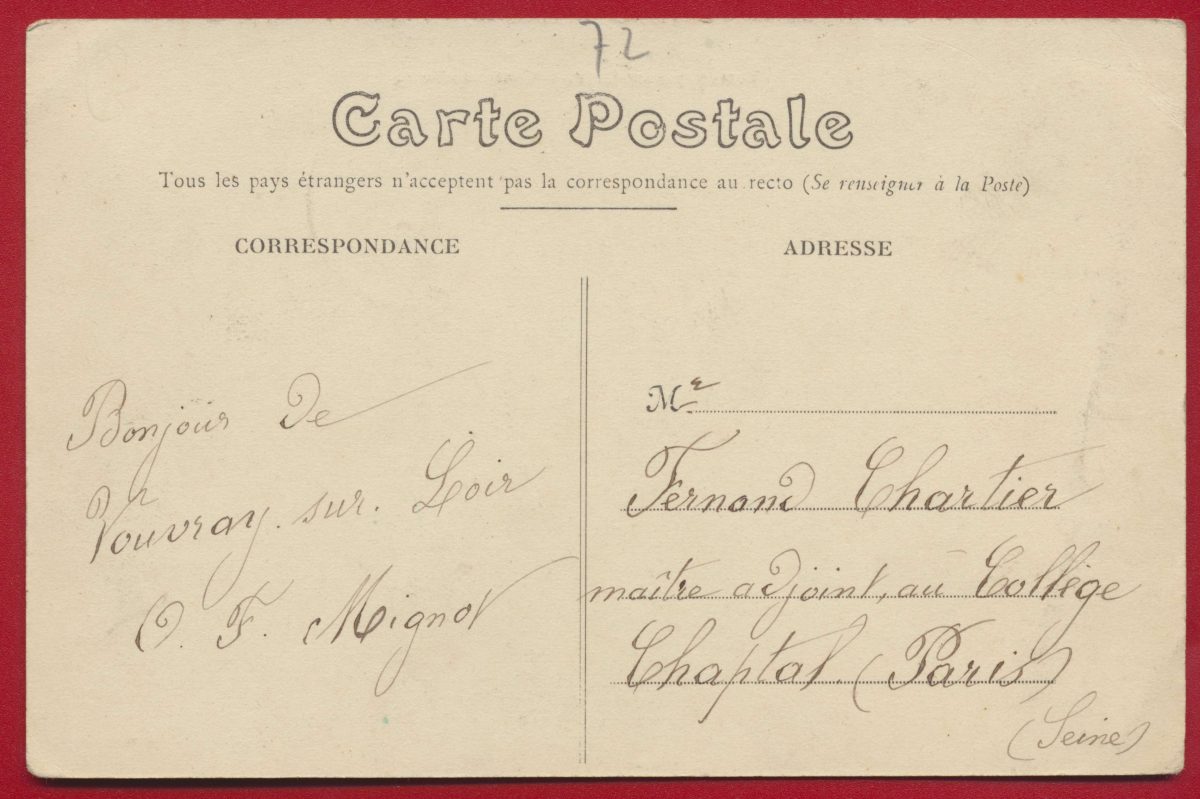 72
Carte Postale
Tous les pays étrangers n'acceptent pas la correspondance au recto (Se renseigner à la Poste)
CORRESPONDANCE
Bonjour de
Vouvray. sur. Loir
F. Mignot
ADRESSE
Mr
Fernand Chartier
maître adjoint, au Collège
Chaptal. (Paris)
(Seine)